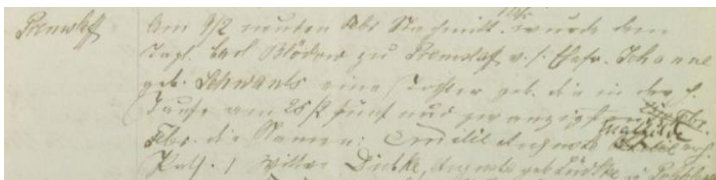 Premslaff Am 9/2 neunten Abs Nachmitt. wurde dem
Tagl. Carl Blödow zu Premslaff v. s. Ehefr. Johanne
geb. Schwants eine Tochter geb. die in der h.
Taufe am 25/2 fünf und zwanzigsten
die Namen: Emilie Auguste Mathilde erh.
Path. 1 Wittwe Dittke, Auguste geb. Lüdtke